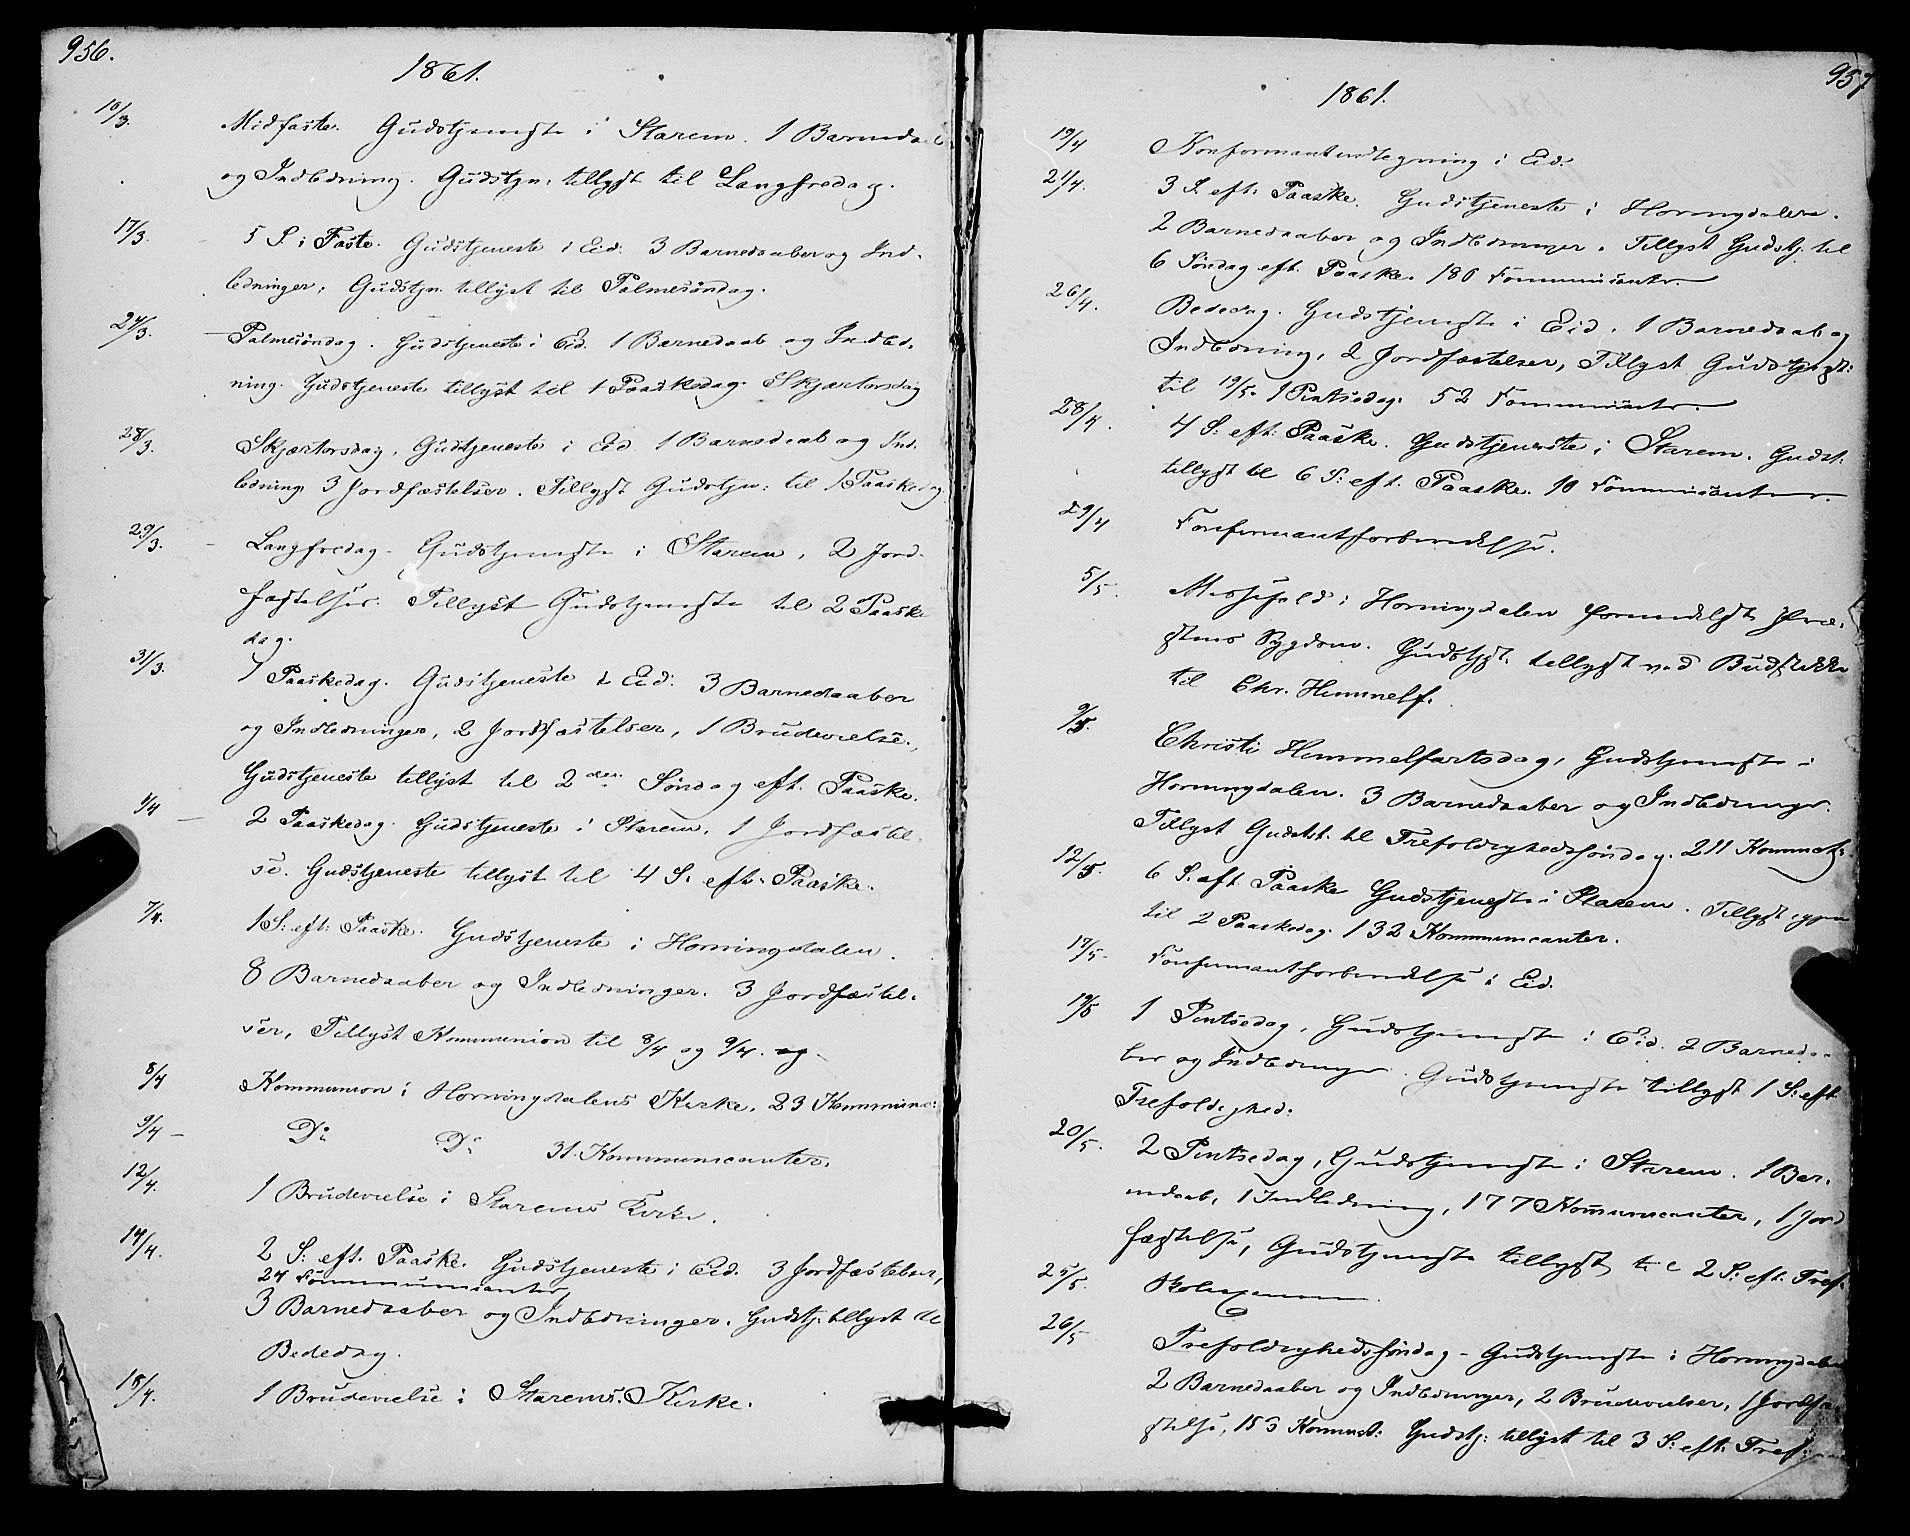 956.
1861.
10/3. Midfaste. Gudstjeneste i Starem. 1 Barneda
og Indledning. Gudstjn. tillyst til Langfredag.
17/3. 5 S. i Faste. Gudstjeneste i Eid. 3 Barnedaaber og Ind-
ledninger, Gudstjn. tillyst til Palmesøndag.
24/3. Palmesøndag. Gudstjeneste i Eid. 1 Barnedaab og Indled-
ning. Gudstjeneste tillyst til 1 Paaskedag. Skjærtorsdag
28/3. Skjærtorsdag, Gudstjeneste i Eid. 1 Barnedaab og Ind-
ledning 3 Jordfæstelser. Tillyst Gudstjn: til 1 Paaskedag
29/3. Langfredag - Gudstjeneste i Starem, 2 Jord-
fæstelser. Tillyst Gudstjeneste til 2 Paaske
dag.
31/3. 1 Paaskedag. Gudstjeneste i Eid. 3 Barnedaaber
og Indledninger, 2 Jordfæstelser, 1 Brudevielse.,
Gudstjeneste tillyst til 2den Søndag eft. Paaske.
1/4 - 2 Paaskedag. Gudstjeneste i Starem. 1 Jordfæstel-
se. Gudstjeneste tillyst til 4 S. eft. Paaske.
7/4. 1 S: eft: Paaske. Gudstjeneste i Horningdalen.
8 Barnedaaber og Indledninger. 3 Jordfæstel-
ser, Tillyst Kommunion til 8/4 og 9/4. og
8/4 Kommunion i Horningdalens Kirke. 23 Kommunic:
9/4 - Do Do 31. Kommunicanter.
12/4. 1 Brudevielse i Starems Kirke.
14/4. 2 S: eft. Paaske. Gudstjeneste i Eid. 3 Jordfæstelser,
24 Kommunicanter
3 Barnedaaber og Indledninger. Gudstj. tillyst til
Bededag.
18/4. 1 Brudevielse i Starems Kirke.
957
1861.
19/4 Konfirmantindtegning i Eid.
21/4. 3 S. eft. Paaske. Gudstjeneste i Horningdalen.
2 Barnedaaber og Indledninger. Tillyst Gudstj. til
6 Søndag eft. Paaske. 180 Kommunicanter.
26/4. Bededag. Gudstjeneste i Eid. 1 Barnedaab og
Indledning, 2 Jordfæstelser, Tillyst Gudstjgst:
til 19/5. 1 Pintsedag. 52 Kommunicanter.
28/4. 4 S: eft: Paaske. Gudstjeneste i Starem. Gudst.
tillyst til 6 S: eft. Paaske. 10 Kommunicanter.
29/4 Konfirmantforberedelse.
5/5. Messefald i Horningdalen formedelst Præ-
stens Sygdom. Gudstjgst. tillyst ved Budstikke
til Chr. Himmelf.
9/5. Christi Himmelfartsdag, Gudstjeneste i
Horningdalen. 3 Barnedaaber og Indledninger.
Tillyst Gudstj. til Trefoldighedssøndag. 211 Kommct.
12/5. 6 S. eft Paaske Gudstjeneste i Starem. Tillyst igjen
til 2 Paaskedag. 132 Kommunicanter.
17/5. Konfirmantforberedelse i Eid.
19/5 1 Pintsedag, Gudstjeneste i Eid. 2 Barneda-
ber og Indledninger. Gudstjeneste tillyst 1 S: eft
Trefoldighed.
20/5. 2 Pintsedag, Gudstjeneste i Starem. 1 Bar-
nedaab, 1 Indledning, 177 Kommunicanter, 1 Jord
fæstelse, Gudstjeneste tillyst til 2 S: eft. Tref.
25/5. Skolexamen
26/5 Trefoldighedssøndag - Gudstjeneste i Horningdalen
2 Barnedaaber og Indledninger, 2 Brudevielser, 1 Jordfæ-
stelse, 183 Kommct: Gudstj: tillyst til 3 S: eft. Tref.